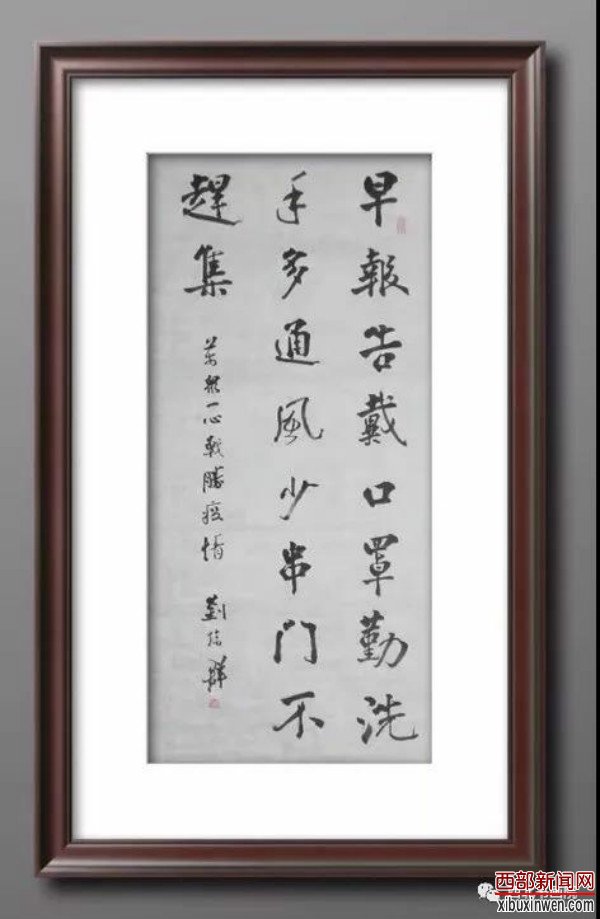 早報告戴口罩勤洗
手多通風少串门不
趕集
萬衆一心戰勝疫情 劉
西部新闻网
xibuxinwen.com